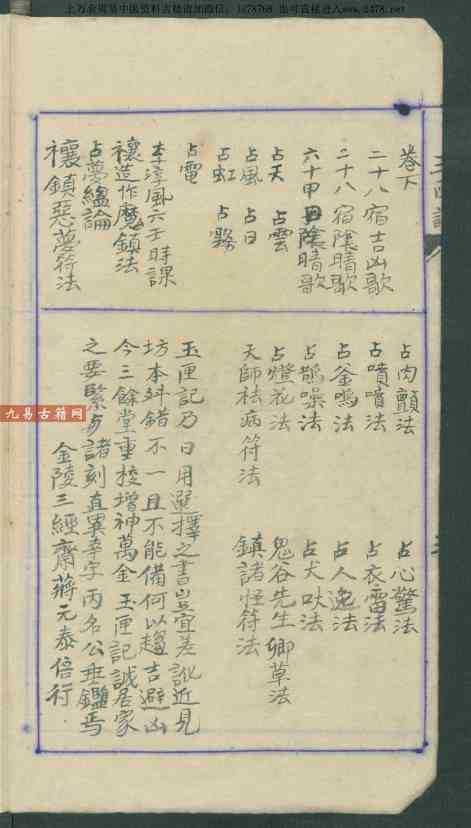 上万套周易中医资料古籍请加微信： 也可直接进入www.2478.net
卷下
二十八宿吉凶歌
二十八宿陰晴歌
六十甲日陰晴歌
占天 占雲
占風 占日
占虹 占霧
占電
李淳風六壬時課
禳造作魘鎮法
占夢縕論
禳鎮惡夢符法
占肉顫法 占心驚法
占噴噴法 占衣雷法
占釜鳴法 占人逸法
占鵲噪法 占犬吠法
占燈花法 鬼谷先生卿草法
天師祛病符法 鎮諸怪符法
玉匣記乃日用選擇之書豈宜差訛近見
坊本舛錯不一且不能備何以趨吉避凶
今三餘堂重校增神萬金玉匣記誠居家
之要緊與諸刻直異幸字丙名公垂鑑焉
金陵三經齋蔣元泰倍行
九易古籍网